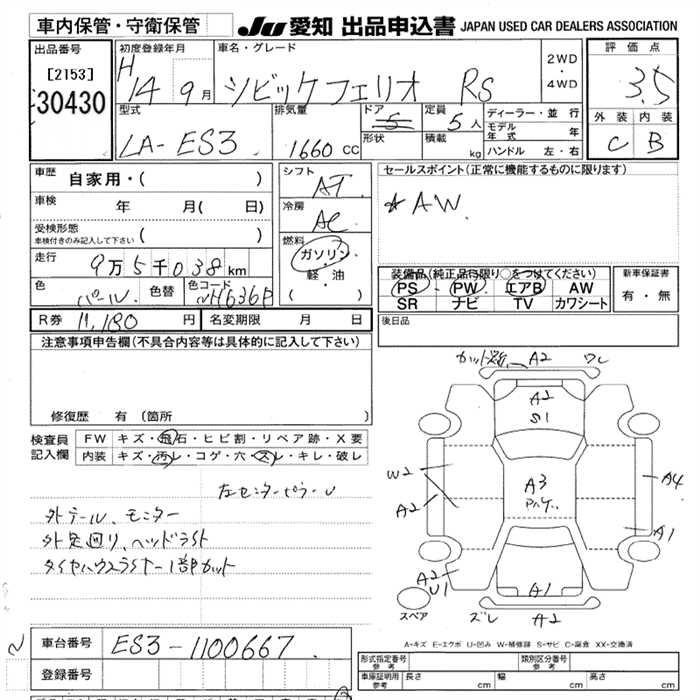 車内保管・守衛保管
JU 愛知 出品申込書 JAPAN USED CAR DEALERS ASSOCIATION
出品番号
[2153]
30430
初度登録年月
H
14 9月
車名・グレード
シビックフェリオ RS
2WD
・
4WD
評価点
3.5
外装 内装
C B
型式
LA-ES3
排気量
1660 CC
ドア
5
形状
定員
5人
積載
kg
ディーラー・並行
モデル年式 年
ハンドル 左・右
車歴 自家用・( )
車検 年 月( 日)
受検形態
車検付きのみ記入して下さい ( )
走行
9万5千038km
色
パール
色替
色コード
NH636P
シフト
AT
冷房
AC
燃料
ガソリン
・
軽・油
( )
セールスポイント(正常に機能するものに限ります)
*AW.
装備品(純正品 限り〇をつけてください)
PS PW エアB AW
SR ナビ TV カワシート
新車保証書
有・無
R券 11,180 円
名変期限 月 日
後日品
注意事項申告欄(不具合内容等は具体的に記入して下さい)
修復歴 有(箇所
検査員
記入欄
FW キズ・飛石・ヒビ割・リペア跡・X要
内装 キズ・汚レ・コゲ・穴・スレ・キレ・破レ
左センターピラーU
外テール、モニター
外足廻り、ヘッドライト
タイヤハウスライナー1部カット
A2 ワレ
A2
S1
W2
A2
A3
A4
A1
A2
U1
A1
スペア
ズレ A2
A-キズ E-エクボ U-凹み W-補修跡 S-サビ C-腐食 XX-交換済
車台番号 ES3-1100667
登録番号
形式指定番号
参考
類別区分番号
参考
車庫証明用
参考
長さ cm 幅 cm 高さ cm